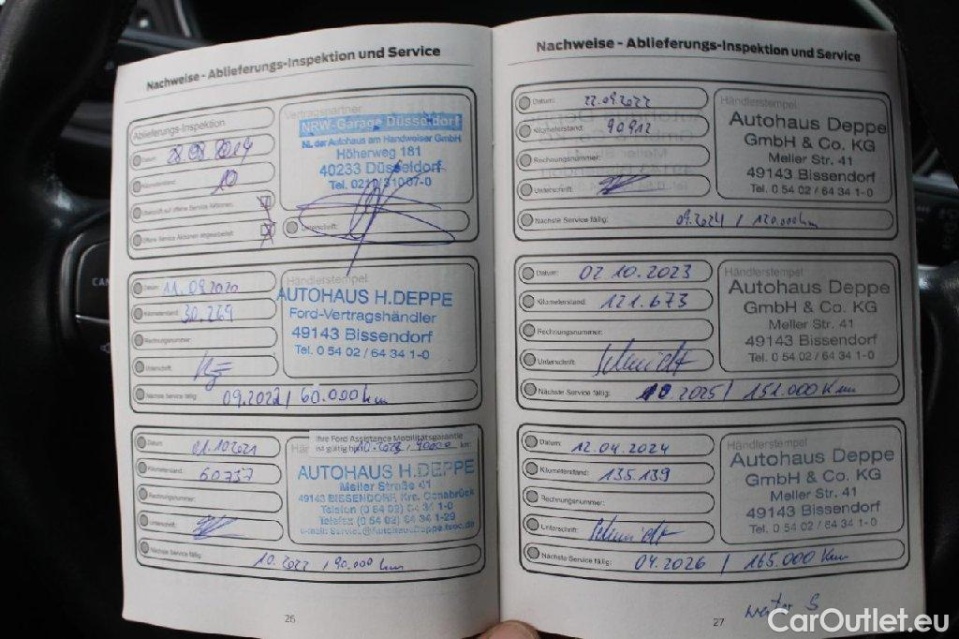 Nachweise - Ablieferungs-Inspektion und Service
Ablieferungs-Inspektion
Datum:
Kilometerstand:
10
Überprüft auf offene Service Aktionen:
Offene Service Aktionen abgearbeitet:
Vertragspartner
NRW-Garage Düsseldorf
NL der Autohaus am Handweiser GmbH
Höherweg 181
40233 Düsseldorf
Unterschrift:
Datum: 11.09.2020
Kilometerstand: 30.269
Rechnungsnummer:
Unterschrift:
Nächste Service fällig: 09.2022 / 60.000 km
Händlerstempel
AUTOHAUS H.DEPPE
Ford-Vertragshändler
49143 Bissendorf
Tel. 0 54 02 / 64 34 1-0
Datum: 01.10.2021
Kilometerstand: 60757
Rechnungsnummer:
Unterschrift:
Nächste Service fällig:
10.2022 / 90.000 km
Ihre Ford Assistance Mobilitätsgarantie
ist gültig bis
AUTOHAUS H.DEPPE
Meller Straße 41
49143 BISSENDORF, Krs. Osnabrück
Telefon (0 54 02) 64 34 1-0
Telefax (0 54 02) 64 34 1-29
26
Nachweise - Ablieferungs-Inspektion und Service
Datum: 22.09.2022
Kilometerstand: 90912
Rechnungsnummer:
Unterschrift:
Nächste Service fällig: 09.2024 / 120.000 km
Händlerstempel
Autohaus Deppe
GmbH & Co. KG
Meller Str. 41
49143 Bissendorf
Tel. 0 54 02 / 64 34 1-0
Datum: 02.10.2023
Kilometerstand: 121.673
Rechnungsnummer:
Unterschrift: Schmidt
Nächste Service fällig: 10.2025 / 151.000 Km
Händlerstempel
Autohaus Deppe
GmbH & Co. KG
Meller Str. 41
49143 Bissendorf
Tel. 0 54 02 / 64 34 1-0
Datum: 12.04.2024
Kilometerstand: 135.139
Rechnungsnummer:
Unterschrift: Schmidt
Nächste Service fällig: 04.2026 / 165.000 Km
Händlerstempel
Autohaus Deppe
GmbH & Co. KG
Meller Str. 41
49143 Bissendorf
Tel. 0 54 02 / 64 34 1-0
27
weiter S
CAN
CarOutlet.eu